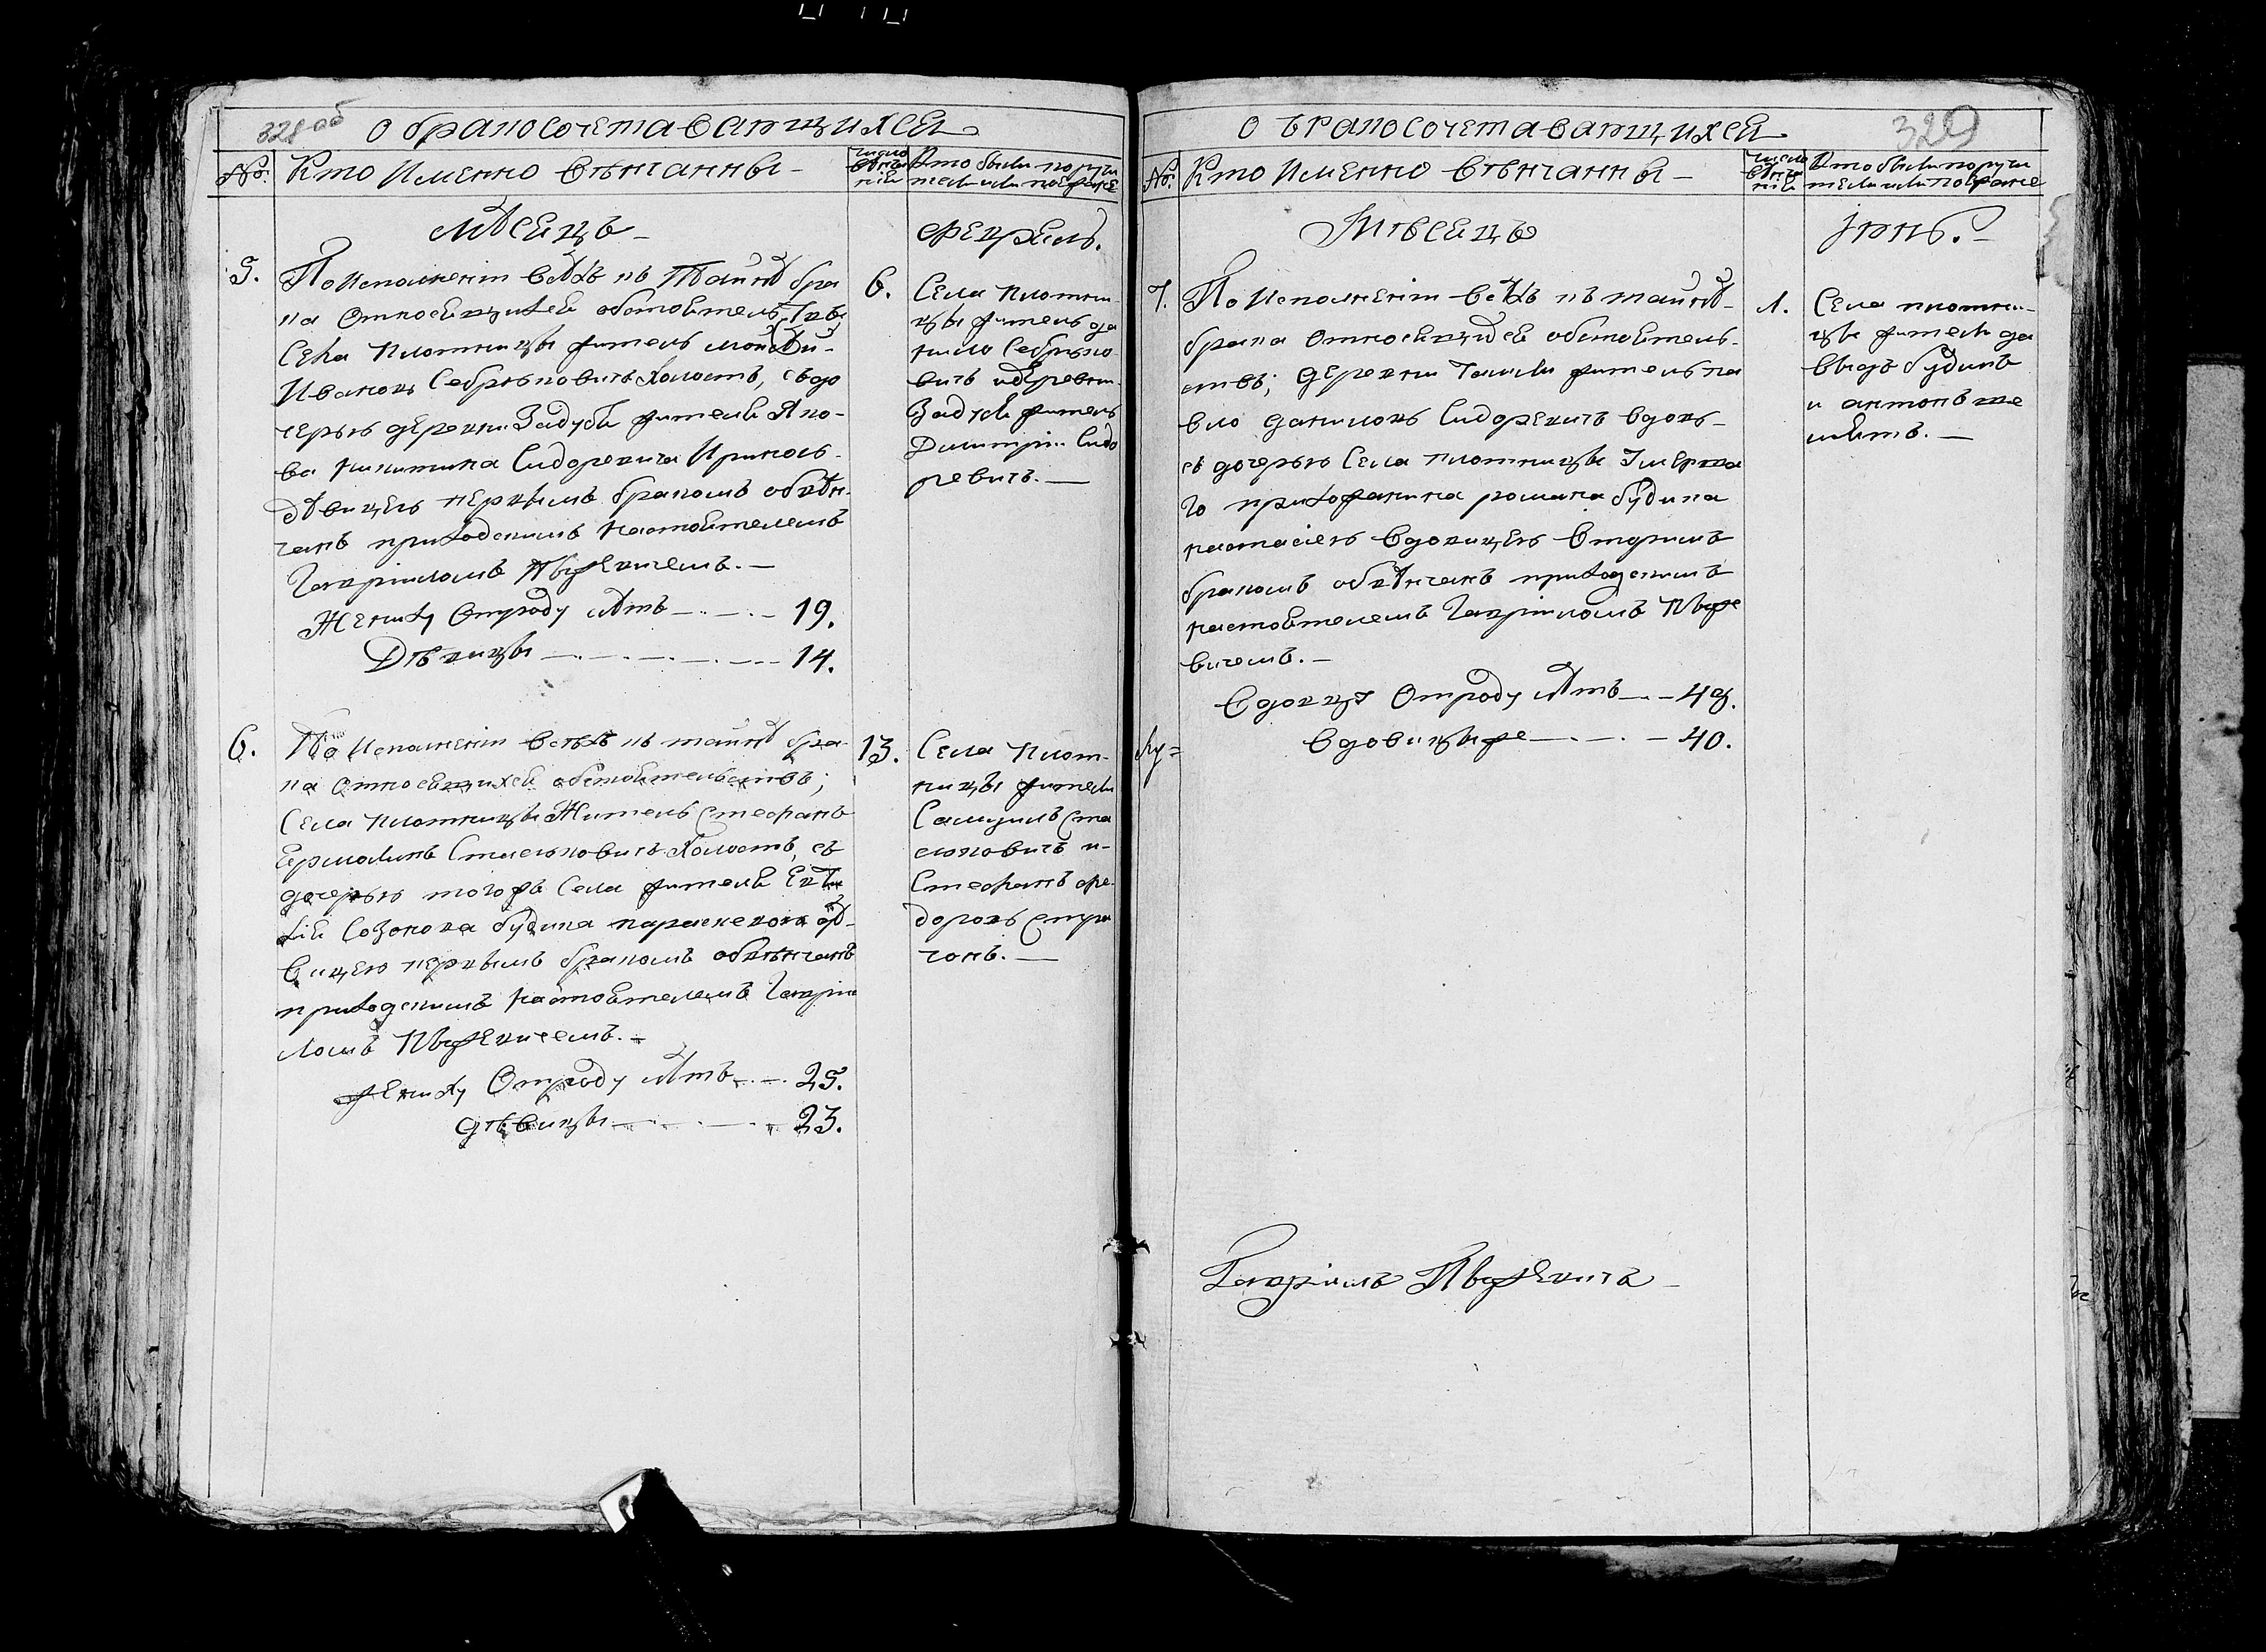 328об
О бракосочетавшихся
№.
Кто Именно Вѣнчанны -
число
вѣнча
нія
Кто были поручи
тели или поѣзжане
Мѣсецъ -
Февраль.
5.
По исполненіи всѣхъ къ Тайнѣ бра
ка Относящихся обстоятельствъ
Села Плотницы житель Мойсѣй -
Ивановъ Себрюковичъ Холостъ, съ до
черью деревни Задубья жителя Яко-
ва Никитина Сидоревича Ириною -
дѣвицею первымъ бракомъ обвѣн-
чанъ приходскимъ настоятелемъ
Гавріиломъ Пыжевичемъ. -
Жениху Отроду лѣтъ - 19.
Дѣвицы - 14.
6.
Села Плотни
цы житель да
нило Себрюко
вичъ и деревни
Задубья житель
Димитрій Сидо
ревичъ. -
6.
По исполненіи всѣхъ къ тайнѣ бра-
ка относящихся обстоятельствъ;
Села Плотницы Житель Стефанъ
Ермолинъ Стасюковичъ Холостъ, съ
дочерью тогожъ Села жителя
Созонова будика параскевою дѣ-
вицею первымъ бракомъ обвѣнчанъ
приходскимъ настоятелемъ Гавріи
ломъ Пыжевичемъ. -
жениху Отроду лѣтъ - 25.
дѣвицы - 23.
13.
Села Плот-
ницы жители
Самуилъ Ста
сюковичъ и -
Стефанъ фе-
доровъ
чокъ. -
329
О бракосочетавшихся
№.
Кто Именно Вѣнчанны -
число
вѣнча
нія
Кто были поручи
тели или поѣзжане
Мѣсецъ
Іюнь. -
7.
По исполненіи всѣхъ къ тайнѣ -
брака относящихся обстоятель-
ствъ; деревни житель па
вло даниловъ Сидоревичъ вдовъ -
съ дочерью Села плотницы Умерша
го прихожанина романа будика
настасіею вдовицею вторымъ
бракомъ обвѣнчанъ приходскимъ
настоятелемъ Гавріиломъ Пыже
вичемъ. -
Вдовцу Отроду лѣтъ - 49.
Вдовицыже - 40.
1.
Села плотни-
цы жители да
выдъ будикъ
и антонъ ше
лѣстъ. -
Гавріилъ Пыжевичъ -